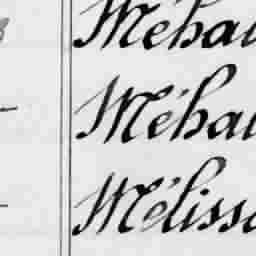 Méhau
Méhau
Mélisso